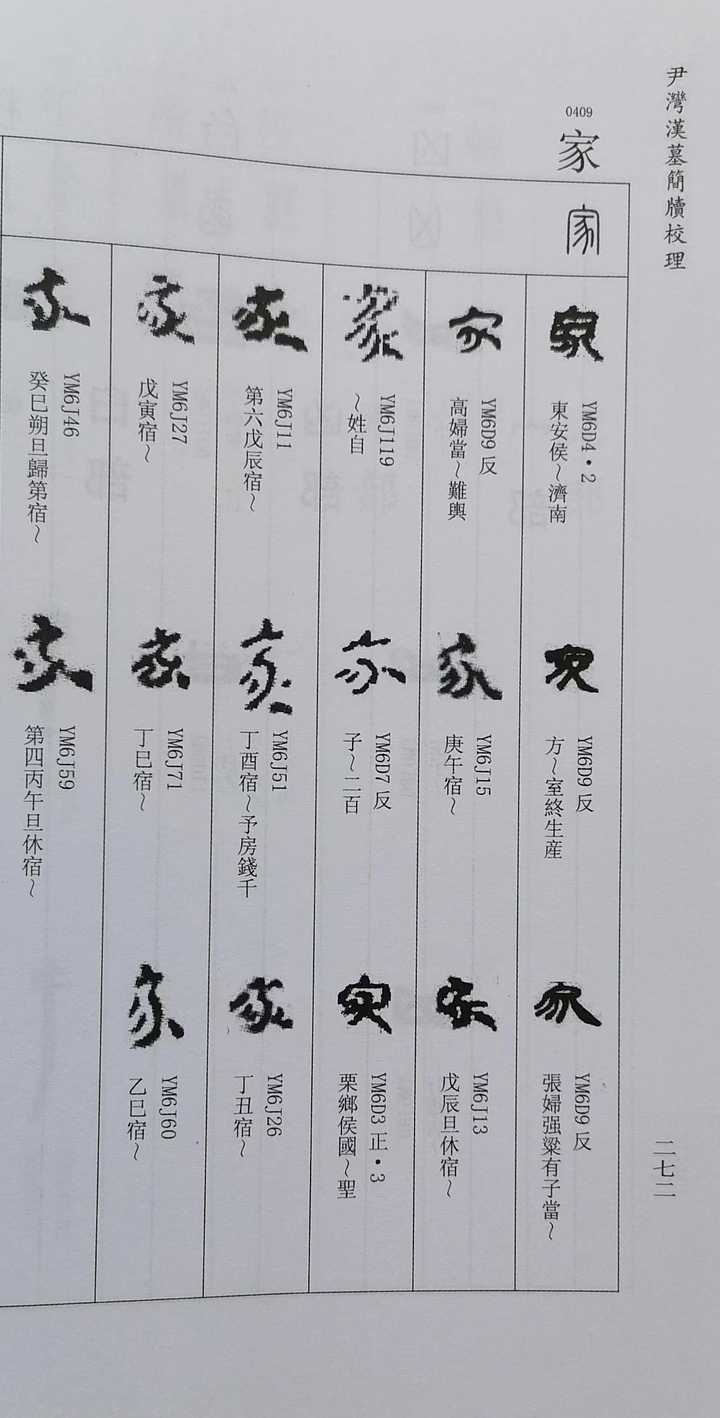 尹灣漢墓簡牘校理
二七二
0409
家
家
YM6D4·2
東安侯~濟南
YM6D9反
方~室終生産
YM6D9反
張婦强梁有子當~
YM6D9反
高婦當~難輿
YM6J15
庚午宿~
YM6J13
戊辰旦休宿~
YM6J119
~姓自
YM6D7反
子~二百
YM6D3正·3
栗鄉侯國~聖
YM6J11
第六戊辰宿~
YM6J51
丁酉宿~予房錢千
YM6J26
丁丑宿~
YM6J27
戊寅宿~
YM6J71
丁巳宿~
YM6J60
乙巳宿~
YM6J46
癸巳朔旦歸第宿~
YM6J59
第四丙午旦休宿~